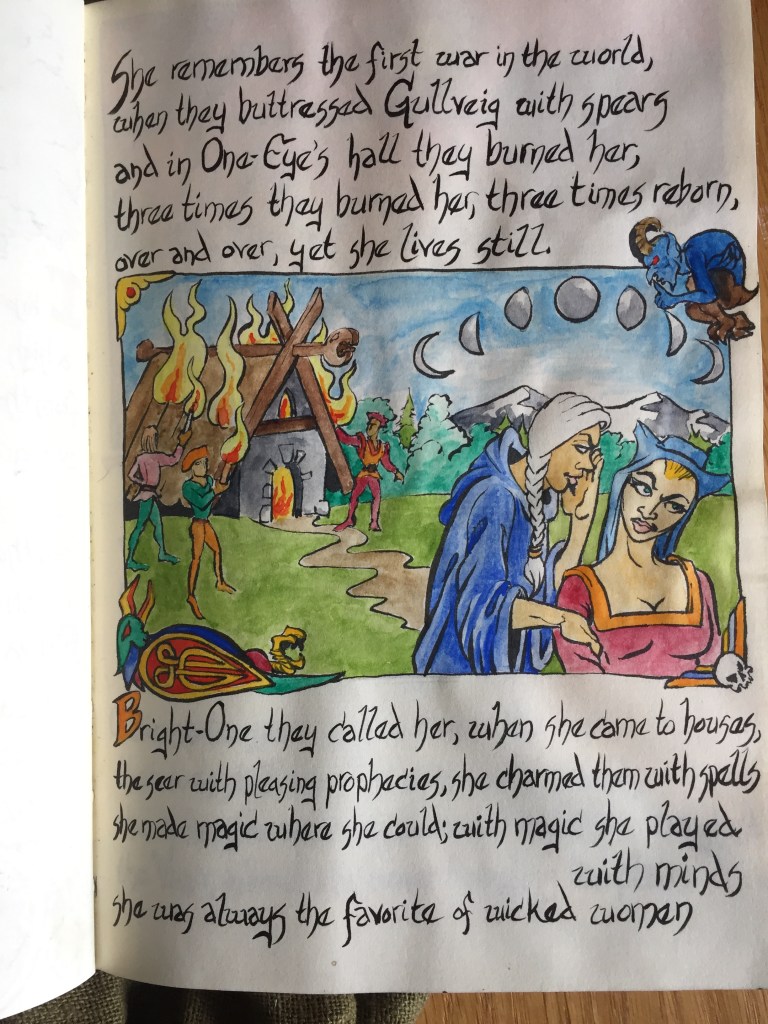 She remembers the first war in the world,
when they buttressed Gullveig with spears
and in One-Eye's hall they burned her,
three times they burned her, three times reborn,
over and over, yet she lives still.
Bright-One they called her, when she came to houses,
the seer with pleasing prophecies, she charmed them with spells
she made magic where she could; with magic she played
with minds
she was always the favorite of wicked women